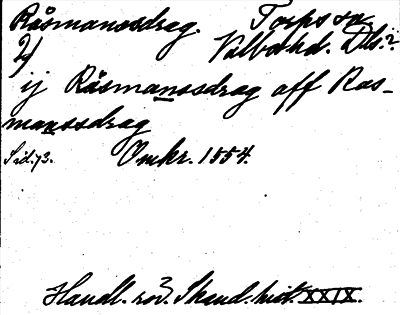 Råsmanosdrag. Torps sn
2/ Valbo hd. Dls.?
ij Råsmanssdrag aff Ras-
manssdrag
Sid. 73. Omkr. 1554.
Handl. rör. Skand. hist. XXIX.